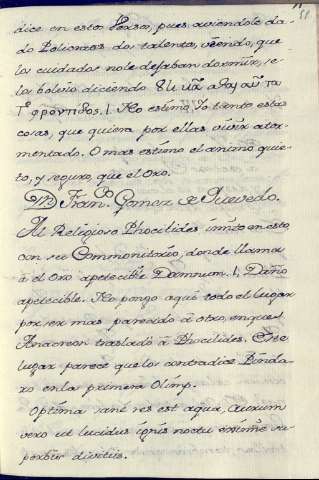 51
dice en estos Versos, pues aviendole da-
do Policrates dos talentos, viendo, que
los cuidados no le dexaban dormir, se
los bolvio diciendo
φροντιδος, I No estimo Yo tanto estas
cosas, que quiera por ellas vivir ator-
mentado. O mas estimo el animo quie-
to, y seguro, que el Oro.
Dn Franco. Gomez de Quevedo.
Al Religioso Phocilides imitò en esto
con su Commonitorio, donde llama
à el Oro apetecible Damnum. I, Daño
apetecible. No pongo aqui todo el lugar
por ser mas parecido à otro, en que
Anacreon trasladò à Phocilides. Este
lugar parece que lo contradice Pinda-
ro en la primera Olimp.
Optima sanè res est aqua, aurum
vero ut lucidus ignis noctu eximiè su-
perbis divitiis.